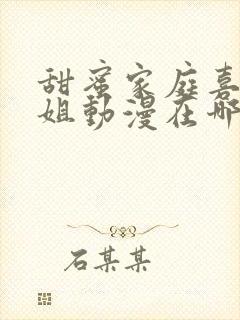 甜蜜家庭嘉
姐動漫在哪
石某某